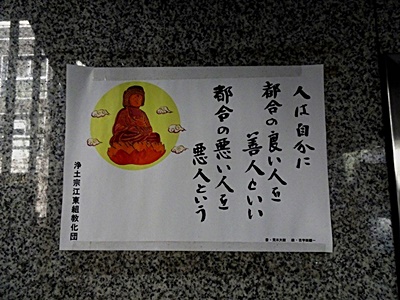 人は自分に
都合の良い人を
善人といい
都合の悪い人を
悪人という
浄土宗江東組教化団